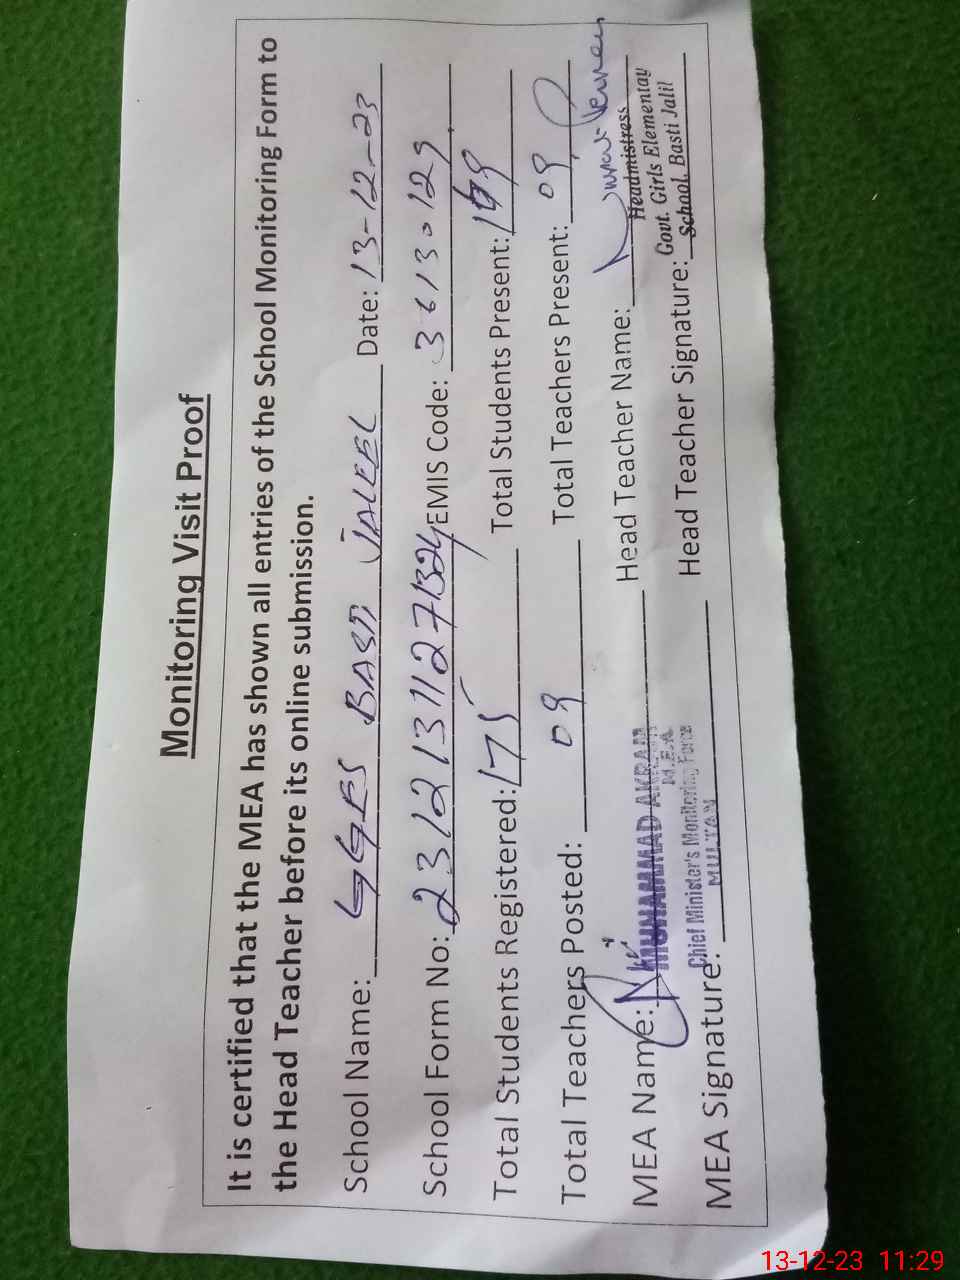 Monitoring Visit Proof
It is certified that the MEA has shown all entries of the School Monitoring Form to
the Head Teacher before its online submission.
School Name: GGES BASTI JALEEL Date: 13-12-23
School Form No: EMIS Code: 36130129
Total Students Registered: 175 Total Students Present:
Total Teachers Posted: 09 Total Teachers Present: 09
MEA Name: MUHAMMAD AKRAM Head Teacher Name:
M.E.A Headmistress
Chief Minister's Monitoring Force Govt. Girls Elementay
MEA Signature: MULTAN Head Teacher Signature: School, Basti Jalil
13-12-23 11:29